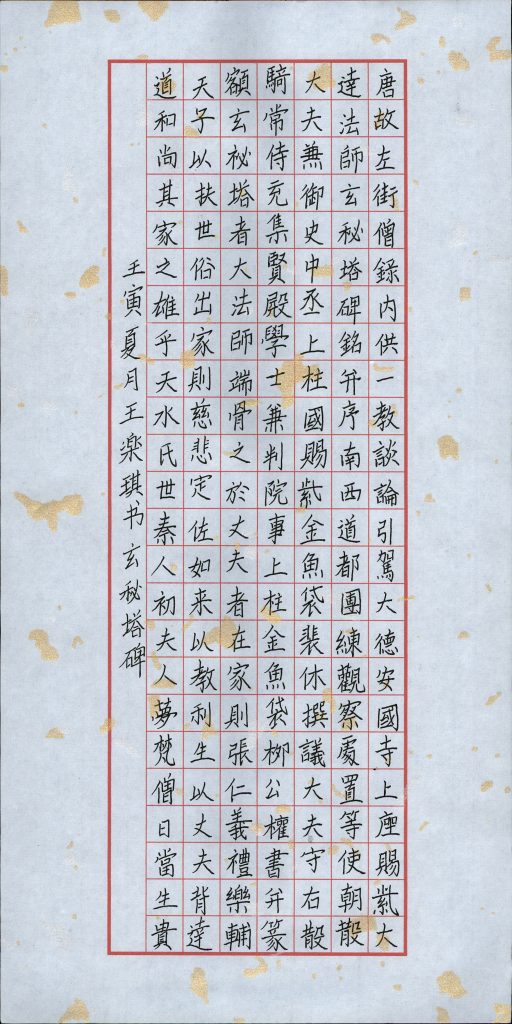 唐故左街僧錄内供一教談論引駕大德安國寺上座賜紫大
達法師玄秘塔碑銘并序南西道都團練觀察處置等使朝散
大夫兼御史中丞上柱國賜紫金魚袋裴休撰議大夫守右散
騎常侍充集賢殿學士兼判院事上柱金魚袋柳公權書并篆
額玄秘塔者大法師端骨之於丈夫者在家則張仁義禮樂輔
天子以扶世俗出家則慈悲定佐如来以教利生以丈夫背達
道和尚其家之雄乎天水氏世秦人初夫人夢梵僧日當生貴
壬寅夏月王楽琪书玄秘塔碑